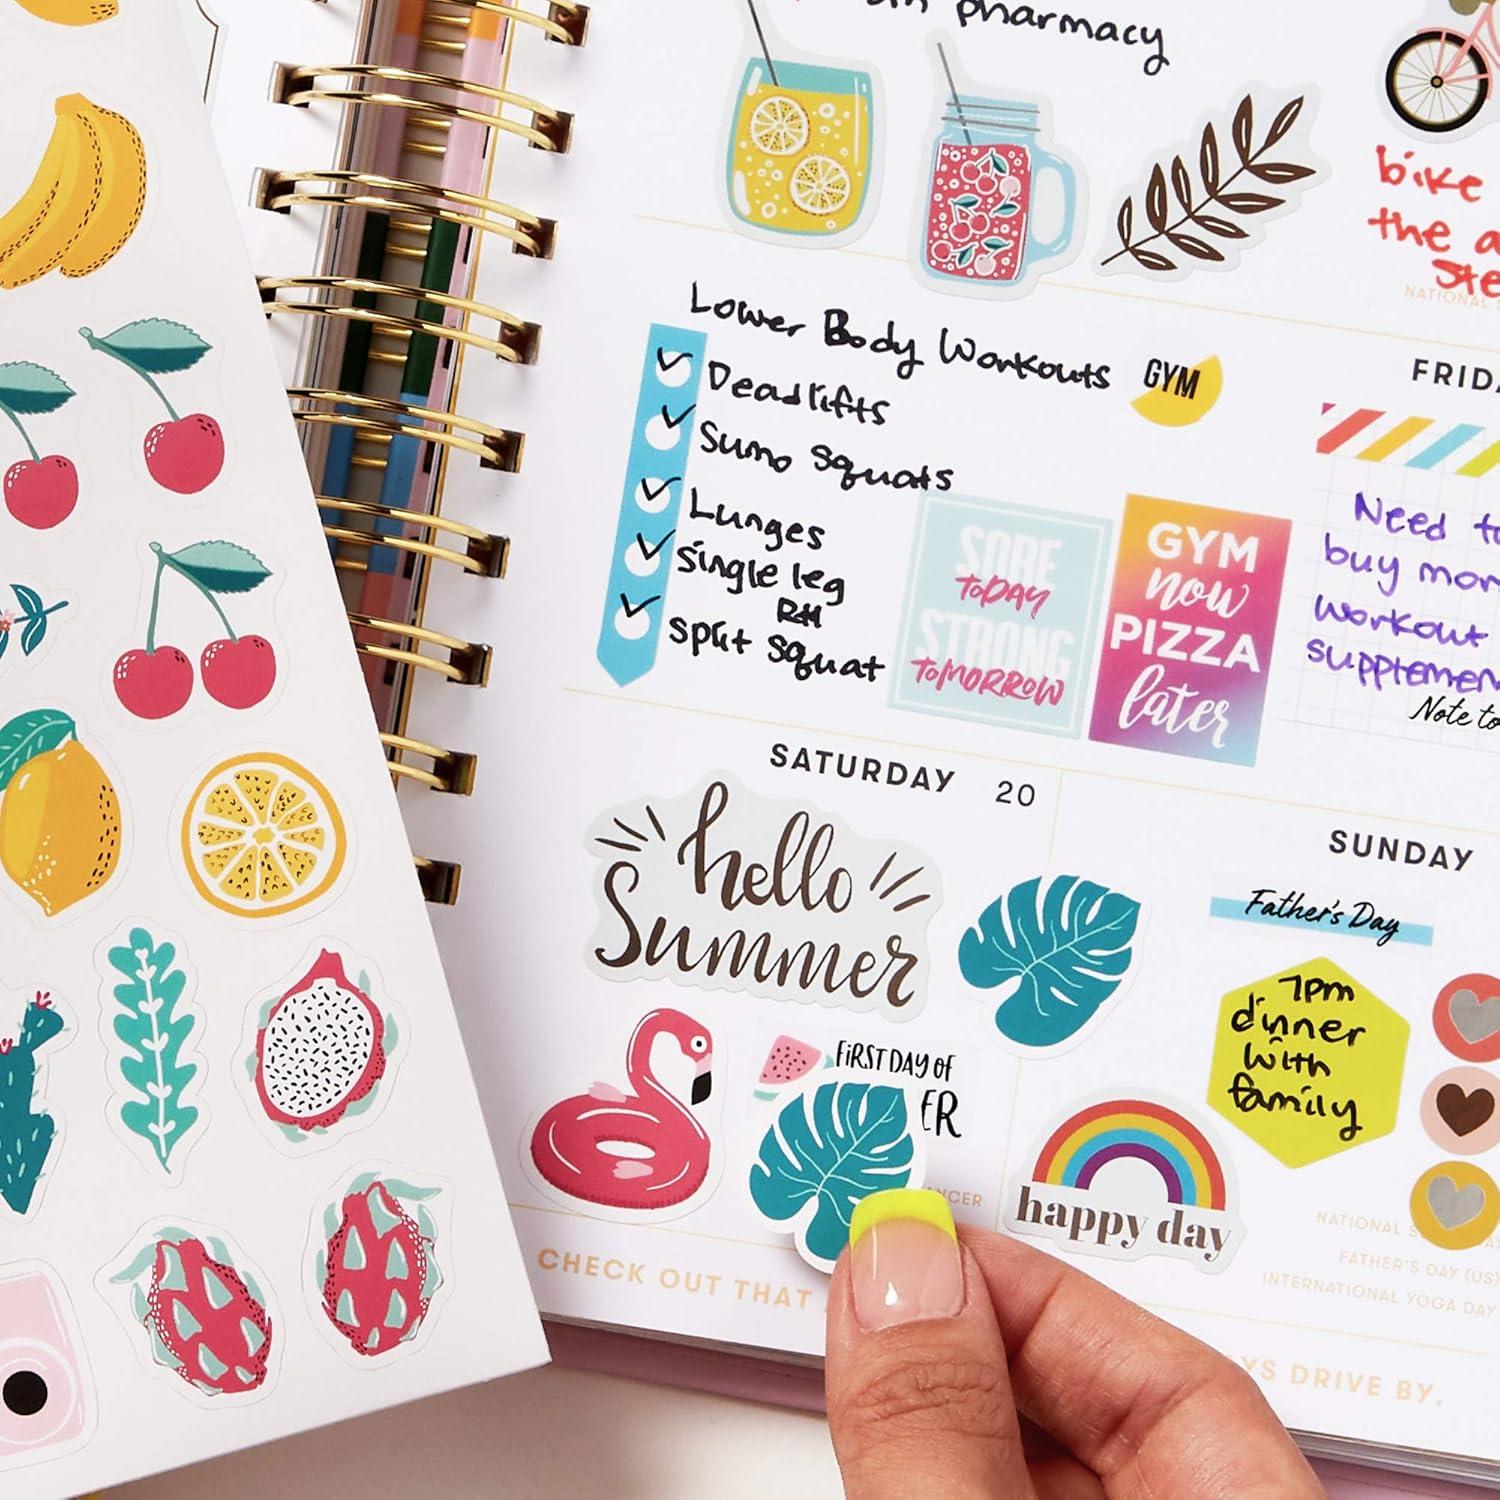 pharmacy
bike
the
NATIONAL
Lower Body Workouts
GYM
Deadlifts
Sumo Squats
Lunges
Single leg
RH
Split Squat
SORE
TODAY
STRONG
TOMORROW
GYM
now
PIZZA
later
Need
buy
workout
Note to
SATURDAY 20
hello
Summer
FiRST DAY OF
SUNDAY
Father's Day
7pm
dinner
with
family
happy day
NATIONAL
FATHER'S DAY (US)
INTERNATIONAL YOGA DAY
CHECK OUT THAT
DRIVE BY.